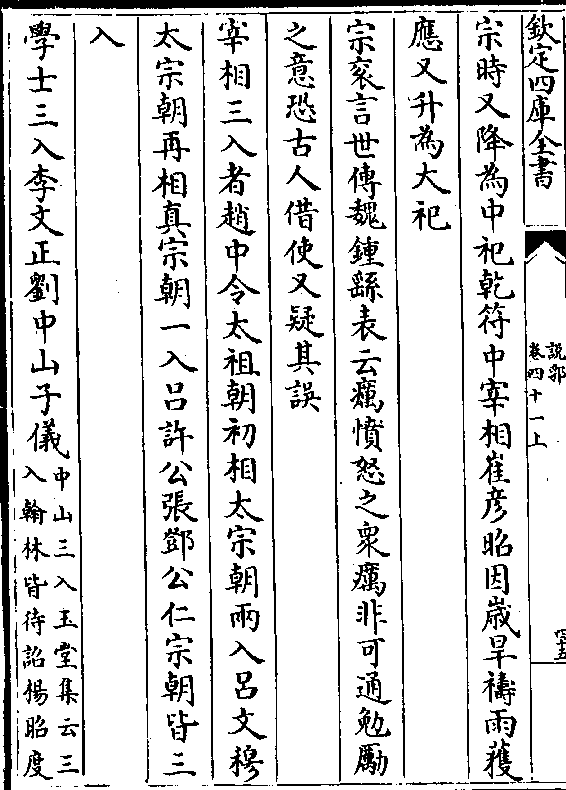 欽定四庫全書
說郛
卷四十一上
四十五
宗時又降為中祀乾符中宰相崔彥昭因歲旱禱雨蔎
應又升為大祀
宗袞言世傳魏鍾繇表云癘憤怒之衆癘非可通勉勵
之意恐古人借使又疑其誤
宰相三入者趙中令太祖朝初相太宗朝兩入呂文穆
太宗朝再相真宗朝一入呂許公張鄧公仁宗朝皆三
入
學士三入李文正劉中山子儀中山三入玉堂集云三
入翰林皆待詔楊昭度